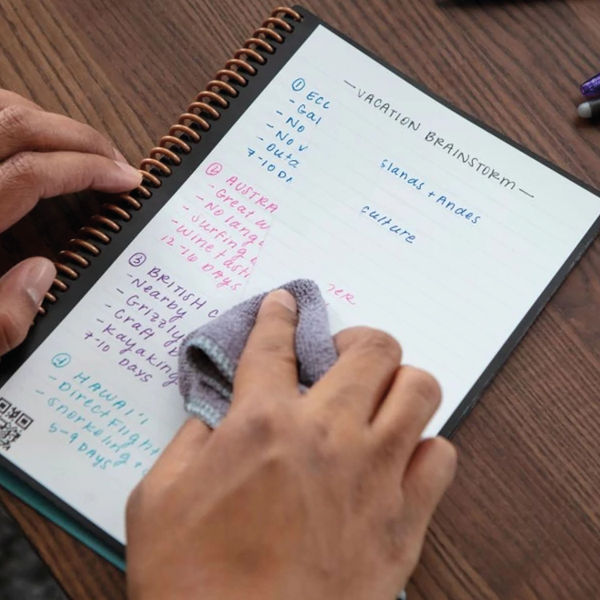 —VACATION BRAINSTORM—
① ECU
- Gal slands + Andes
- No
- No v culture
- Outd
7-10 Da
② AUSTRA
- Great w
- No langu
- Surfing
- Wine tasti
12-16 DAYS
③ BRITISH C
- Nearby
- Grizzly
- Craft
- Kayaking
7-10 DAYS
④ HAWAI'I
- Direct Flight
- Snorkeling +
5-9 DAYS